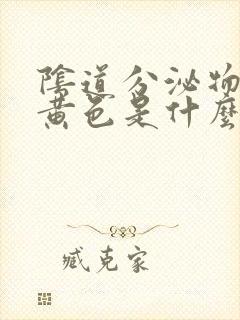 陰道分泌物
黃色是什麼
臧克家